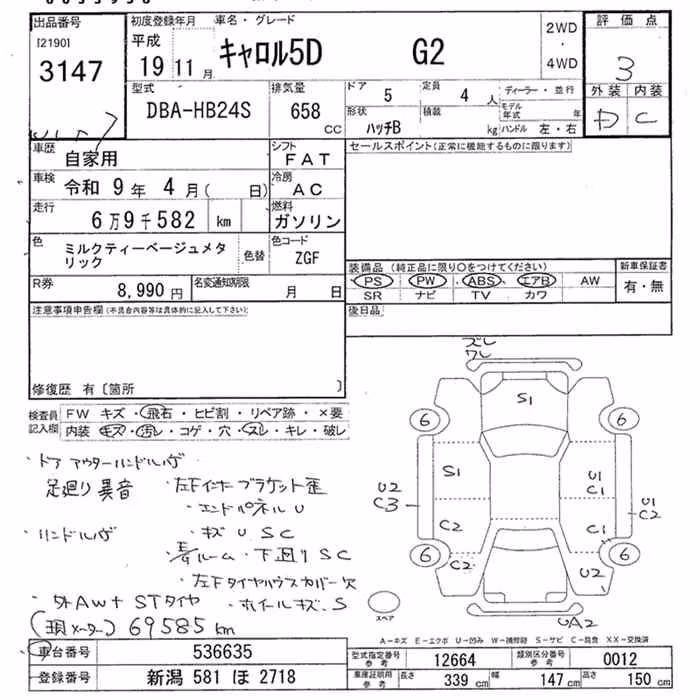 出品番号 初度登録年月 車名・グレード 2WD・4WD 評価点
[2190]
3147
平成 19 11月 キャロル5D G2 3
外装 内装
C
型式 DBA-HB24S 排気量 658 CC
ドア 5 定員 4 人 ディーラー・並行
形状 ハッチB 積載 kg モデル年式 年
ハンドル 左・右
車歴 自家用 シフト FAT セールスポイント(正常に機能するものに限ります)
車検 令和 9年 4月( 日) 冷房 AC
走行 6万9千582 km 燃料 ガソリン
色 ミルクティーベージュメタリック 色替 色コード ZGF
装備品(純正品に限り〇をつけてください) 新車保証書
PS PW ABS エアB AW 有・無
SR ナビ TV カワ
R券 8,990円 名変通知期限 月 日
注意事項申告欄(不具合内容等は具体的に記入して下さい) 後日品
修復歴 有〔箇所 〕
検査員記入欄 FW キズ・飛石・ヒビ割・リペア跡・×要
内装 キズ・汚レ・コゲ・穴・スレ・キレ・破レ
ズレ
ワレ
S1
6 6
S1 U1
C1
U2
C3
U1
C2
C2 C1
6 6
C2 U2
UA2
スペア
・ドアアウターハンドルハゲ
足廻り異音 ・左下インナーブラケット歪
・エンドパネルU
・ハンドルハゲ ・キズ U S C
・荷ルーム・下廻りSC
・左下タイヤハウスカバー欠
・外AW+STタイヤ ・ホイールキズ、S
(現メーター) 69585km
A-キズ E-エクボ U-凹み W-補修跡 S-サビ C-腐食 XX-交換済
車台番号 536635 型式指定番号 参考 12664 類別区分番号 参考 0012
登録番号 新潟 581 ほ 2718 車庫証明用 参考 長さ 339 cm 幅 147 cm 高さ 150 cm